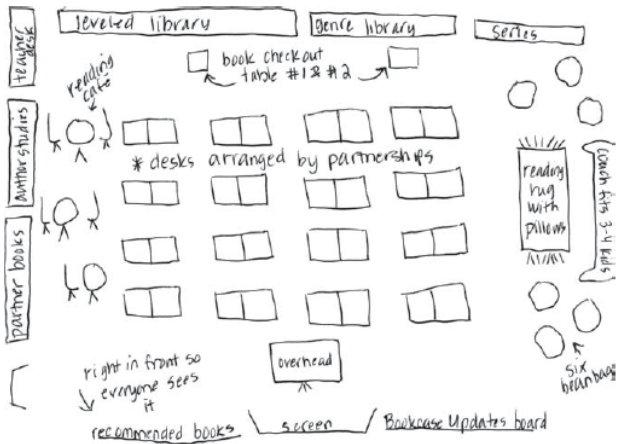 teacher desk
leveled library
genre library
Series
book checkout
table #1 & #2
reading
cafe
author studies
* desks arranged by partnerships
reading
rug
with
pillows
couch fits 3-4 kids
partner books
overhead
right in front so
everyone sees
it
six
beanbags
recommended books
screen
Bookcase Updates board